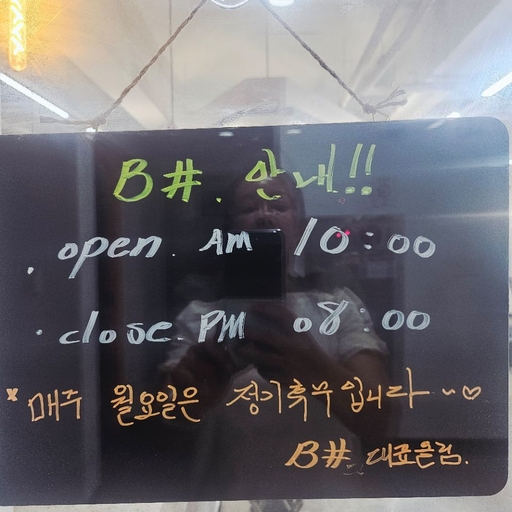 B#. 안내!!
. open. AM 10:00
· close. PM 08:00
* 매주 월요일은 정기휴무입니다~♡
B# 대표올림.